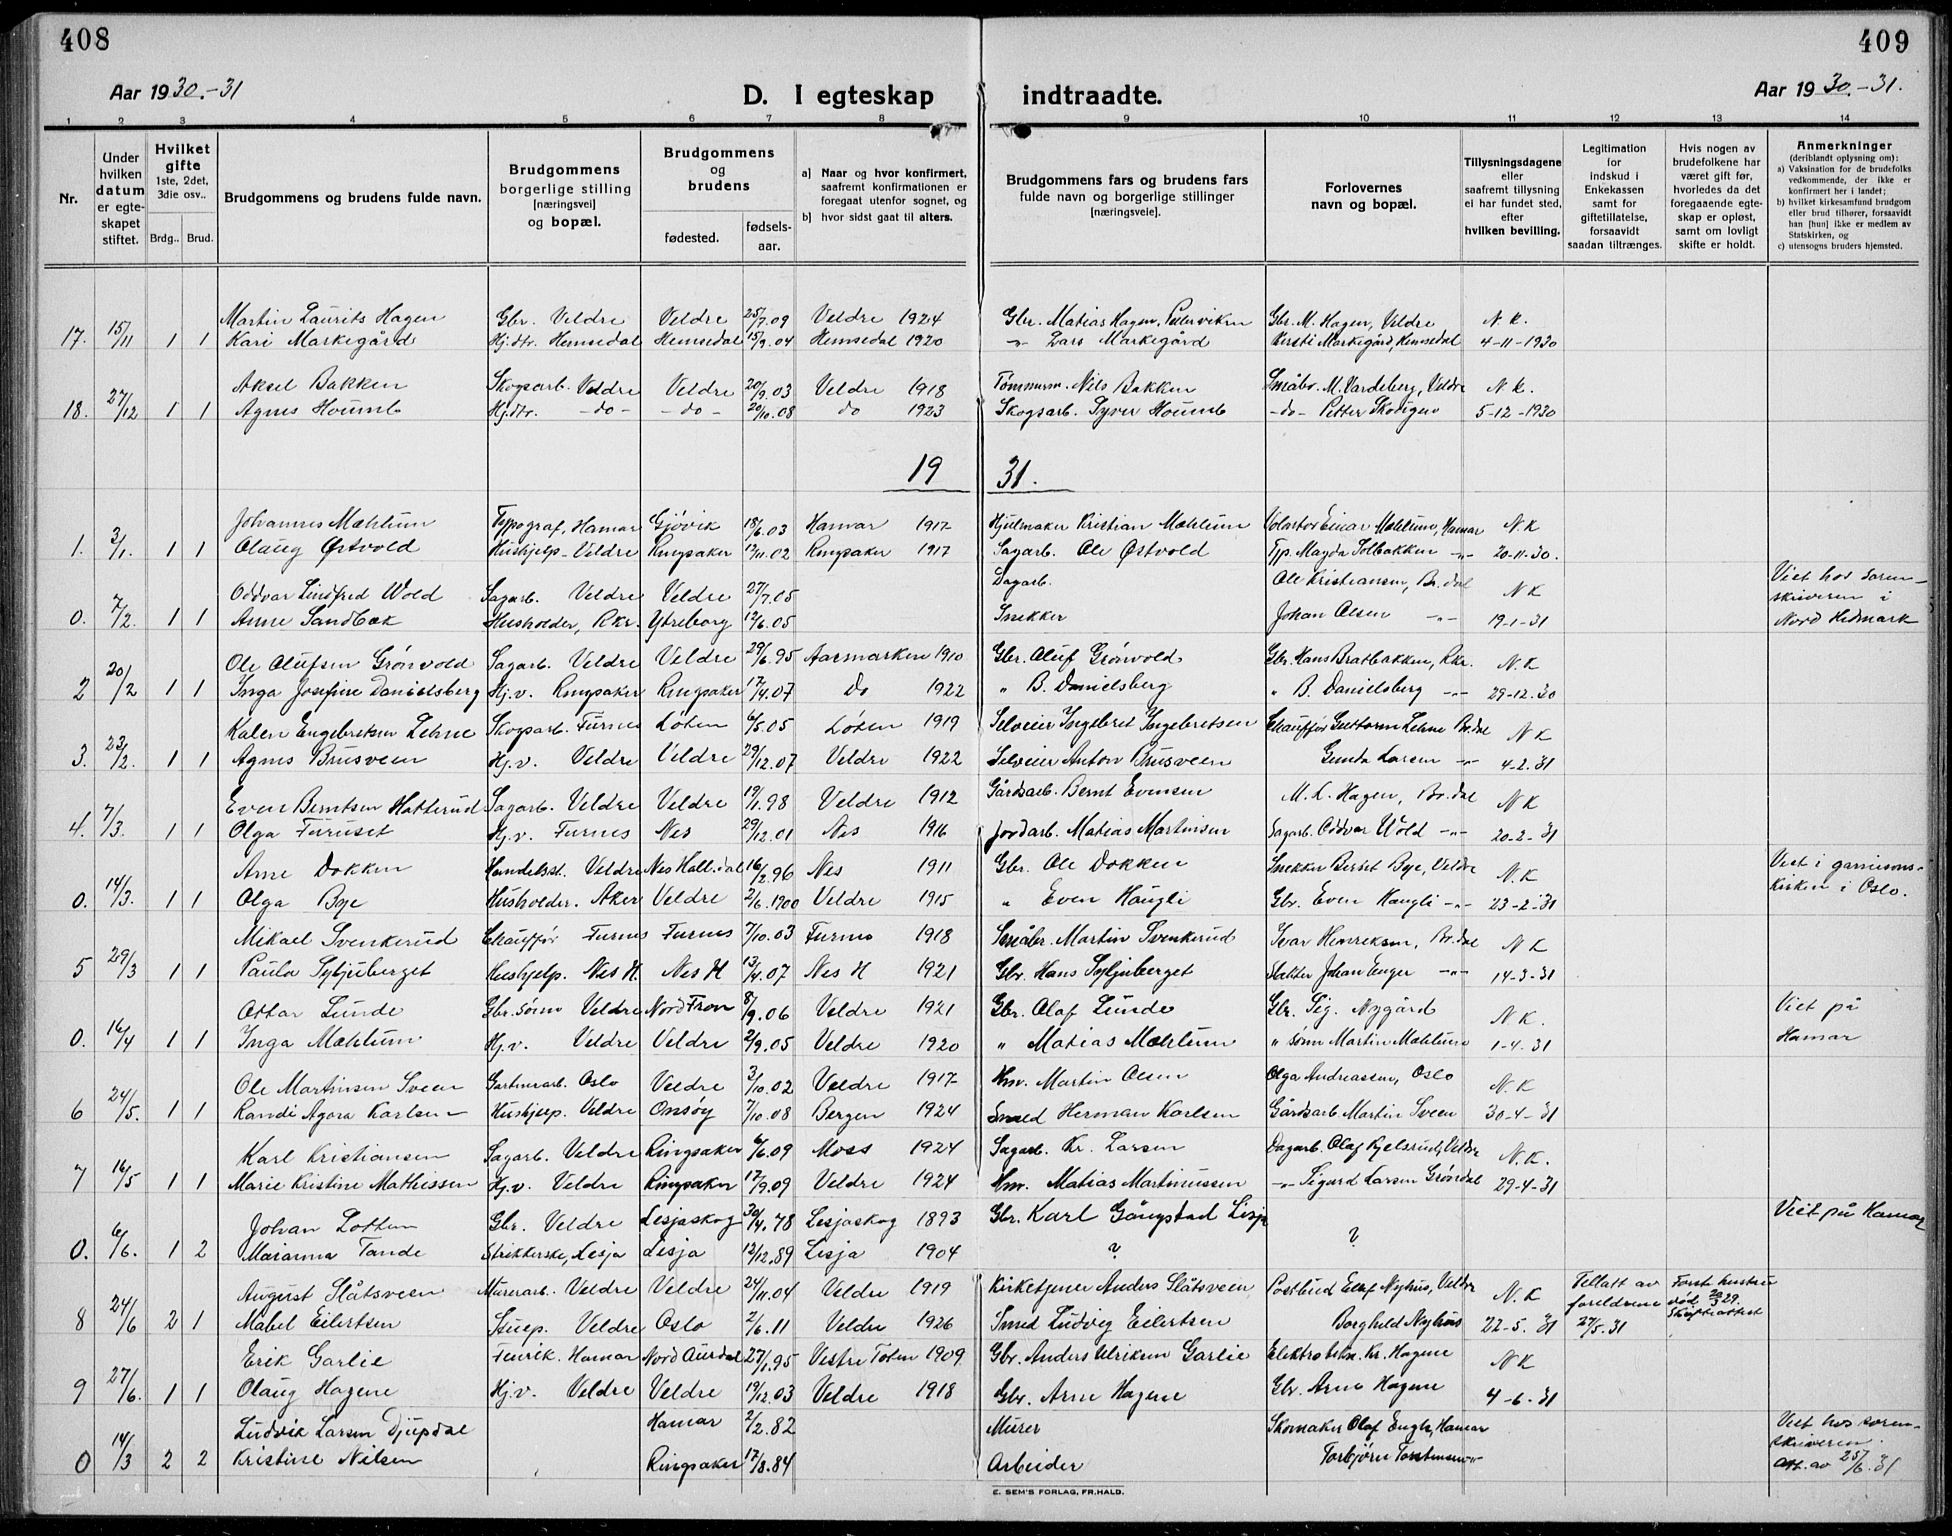 408
409
Aar 1930.-31
D. I egteskap indtraadte.
Aar 1930.-31.
1 2 3 4 5 6 7 8 9 10 11 12 13 14
Nr.
Under hvilken datum er egteskapet stiftet.
Hvilket gifte 1ste, 2det, 3die osv..
Brdg.. Brud.
Brudgommens og brudens fulde navn.
Brudgommens borgerlige stilling [næringsvei] og bopæl.
Brudgommens og brudens
fødested. fødselsaar.
a) Naar og hvor konfirmert, saafremt konfirmationen er foregaat utenfor sognet, og
b) hvor sidst gaat til alters.
Brudgommens fars og brudens fars fulde navn og borgerlige stillinger [næringsveie].
Forlovernes navn og bopæl.
Tillysningsdagene eller saafremt tillysning ei har fundet sted, efter hvilken bevilling.
Legitimation for indskud i Enkekassen samt for giftetillatelse, forsaavidt saadan tiltrænges.
Hvis nogen av brudefolkene har været gift før, hvorledes da det foregaaende egteskap er opløst, samt om lovligt skifte er holdt.
Anmerkninger (deriblandt oplysning om):
a) Vaksination for de brudefolks vedkommende, der ikke er konfirmert her i landet;
b) hvilket kirkesamfund brudgom eller brud tilhører, forsaavidt han [hun] ikke er medlem av Statskirken, og
c) utensogns bruders hjemsted.
Martin Laurits Hagen Gbr. Veldre Veldre 25/7.09 Veldre 1924 Gbr. Matias Hagen, Gbr. M. Hagen, Veldre N.K.
17. 15/11 1 1 Kari Markegård Hj.dtr. Hemsedal Hemsedal 15/9.04 Hemsedal 1920 -"- Lars Markegård Kersti Markegård, Hemsedal 4-11-1930
Aksel Bakken Skogsarb. Veldre Veldre 20/9.03 Veldre 1918 Tømmerm. Nils Bakken Småbr. M. Vardeberg, Veldre N.K.
18. 27/12 1 1 Agnes Houmb Hj.dtr. -do- -do- 20/10.08 do 1923 Skogsarb. Syver Houmb -do- Petter Skougen 5-12-1930
19 31.
Johannes Mæhlum Typograf, Hamar Gjøvik 18/6.03 Hamar 1917 Hjulmaker Kristian Mæhlum Einar Mæhlum, Hamar N.K
1. 3/1. 1 1 Olaug Østvold Hushjelp - Veldre Ringsaker 12/11.02 Ringsaker 1917 Sagarb. Ole Østvold Typ. Magda Solbakken -"- 20-11-30.
Oddvar Lindfred Wold Sagarb. Veldre Veldre 27/7.05 Dagarb. Ole Kristiansen, Br.dal N K Viet hos soren-
0. 7/2. 1 1 Anne Sandbæk Husholder, Rkr. Ytreborg 12/6.05 Snekker Johan Olsen -"- 19-1-31 skriveren i
Nord Hedmark
Ole Olufsen Grønvold Sagarb. Veldre Veldre 29/6.95 Aasmarken 1910 Gbr. Oluf Grønvold Gbr. Hans Bratbakken, Rkr. N K
2 20/2 1 1 Inga Josefine Danielsberg Hj.v. Ringsaker Ringsaker 17/4.07 Do 1922 " B. Danielsberg " B. Danielsberg -"- 29-12.30
Kalen Engebretsen Lehne Skogsarb. Furnes Løten 6/5.05 Løten 1919 Selveier Ingebret Ingebretsen Chauffør Guttorm Lehne Br.dal N K
3. 23/2. 1 1 Agnes Brusveen Hj.v. Veldre Veldre 29/12.07 Veldre 1922 Selveier Anton Brusveen Gunda Larsen -"- 4-2.31
Even Berntsen Hatterud Sagarb. Veldre Veldre 19/1.98 Veldre 1912 Gårdsarb. Bernt Evensen M. L. Hagen, Br.dal N K
4. 7/3. 1 1 Olga Furuset Hj.v. Furnes Nes 29/12.01 Nes 1916 Jordarb. Matias Martinsen Sagarb. Oddvar Wold -"- 20-2-31
Arne Dokken Handelsst. Veldre Nes Hall.dal 16/2.96 Nes 1911 Gbr. Ole Dokken Snekker Berset Bye, Veldre N.K Viet i garnisons-
0. 14/3. 1 1 Olga Bye Husholder. Aker Veldre 2/6.1900 Veldre 1915 " Even Haugli Gbr. Even Haugli -"- 23-2-31 kirken i Oslo.
Mikael Svenkerud Chauffør Furnes Furnes 7/10.03 Furnes 1918 Småbr. Martin Svenkerud Ivar Henriksen, Br.dal N K
5 29/3 1 1 Paula Syljuberget Hushjelp. Nes H. Nes H 13/4.07 Nes H 1921 Gbr. Hans Syljuberget Slakter Johan Enger -"- 14-3-31
Ottar Lunde Gbr. sønn Veldre Nord Fron 8/9.06 Veldre 1921 Gbr. Olaf Lunde Gbr. Sig. Nygård N K. Viet på
0. 16/4 1 1 Inga Mæhlum Hj.v. Veldre Veldre 2/9.05 Veldre 1920 " Matias Mæhlum " sønn Martin Mæhlum 1-4.31 Hamar
Ole Martinsen Sveen Gartnerarb. Oslo Veldre 3/10.02 Veldre 1917 Hm. Martin Olsen Olga Andreassen, Oslo N.K
6 24/5. 1 1 Randi Agora Karlsen Hushjelp. Veldre Onsøy 7/10.08 Bergen 1924 Smed Herman Karlsen Gårdsarb. Martin Sveen 30-4-31
Karl Kristiansen Sagarb. Veldre Ringsaker 6/6.09 Moss 1924 Sagarb. Kr. Larsen Dagarb. Olaf Kjelsrud, Veldre N.K.
7 16/5 1 1 Marie Kristine Mathissen Hj.v. Veldre Ringsaker 17/9.09 Veldre 1924 Hm. Matias Martinussen -"- Sigurd Larsen Grøndal 29-4-31
Johan Lotten Gbr. Veldre Lesjaskog 30/4.78 Lesjaskog 1893 Gbr. Karl Gångstad Lesja Viet på Hamar
0. 6/6. 1 2 Marianna Tande Strikkerske, Lesja Lesja 12/12.89 Lesja 1904 ? ?
August Slåtsveen Murerarb. Veldre Veldre 24/11.04 Veldre 1919 Kirketjener Anders Slåtsveen Postbud Einar Nyhus, Veldre N.K Tillatt av Første hustru
8 24/6 2 1 Mabel Eilertsen Stuep. Veldre Oslo 2/6.11 Veldre 1926 Smed Ludvig Eilertsen Borghild Nyhus 22-5.31 foreldrene 27/5.31 død 20/3 29. Skifteattest
Erik Garlie Fenrik. Hamar Nord Aurdal 27/1.95 Vestre Toten 1909 Gbr. Anders Ulriksen Garlie Elektrotekn. Kr. Hagene N K
9 27/6. 1 1 Olaug Hagene Hj.v. Veldre Veldre 19/12.03 Veldre 1918 Gbr. Arne Hagene Gbr. Arne Hagene 4-6-31
Ludvik Larsen Djupdal Hamar 2/2.82 Murer Skomaker Olaf Engh, Hamar Viet hos soren-
0 14/3 2 2 Kristine Nilsen Ringsaker 17/8.84 Arbeider Torbjørn Torstensen -"- skriveren.
Att. av 25/6.31
E. SEM'S FORLAG, FR.HALD.